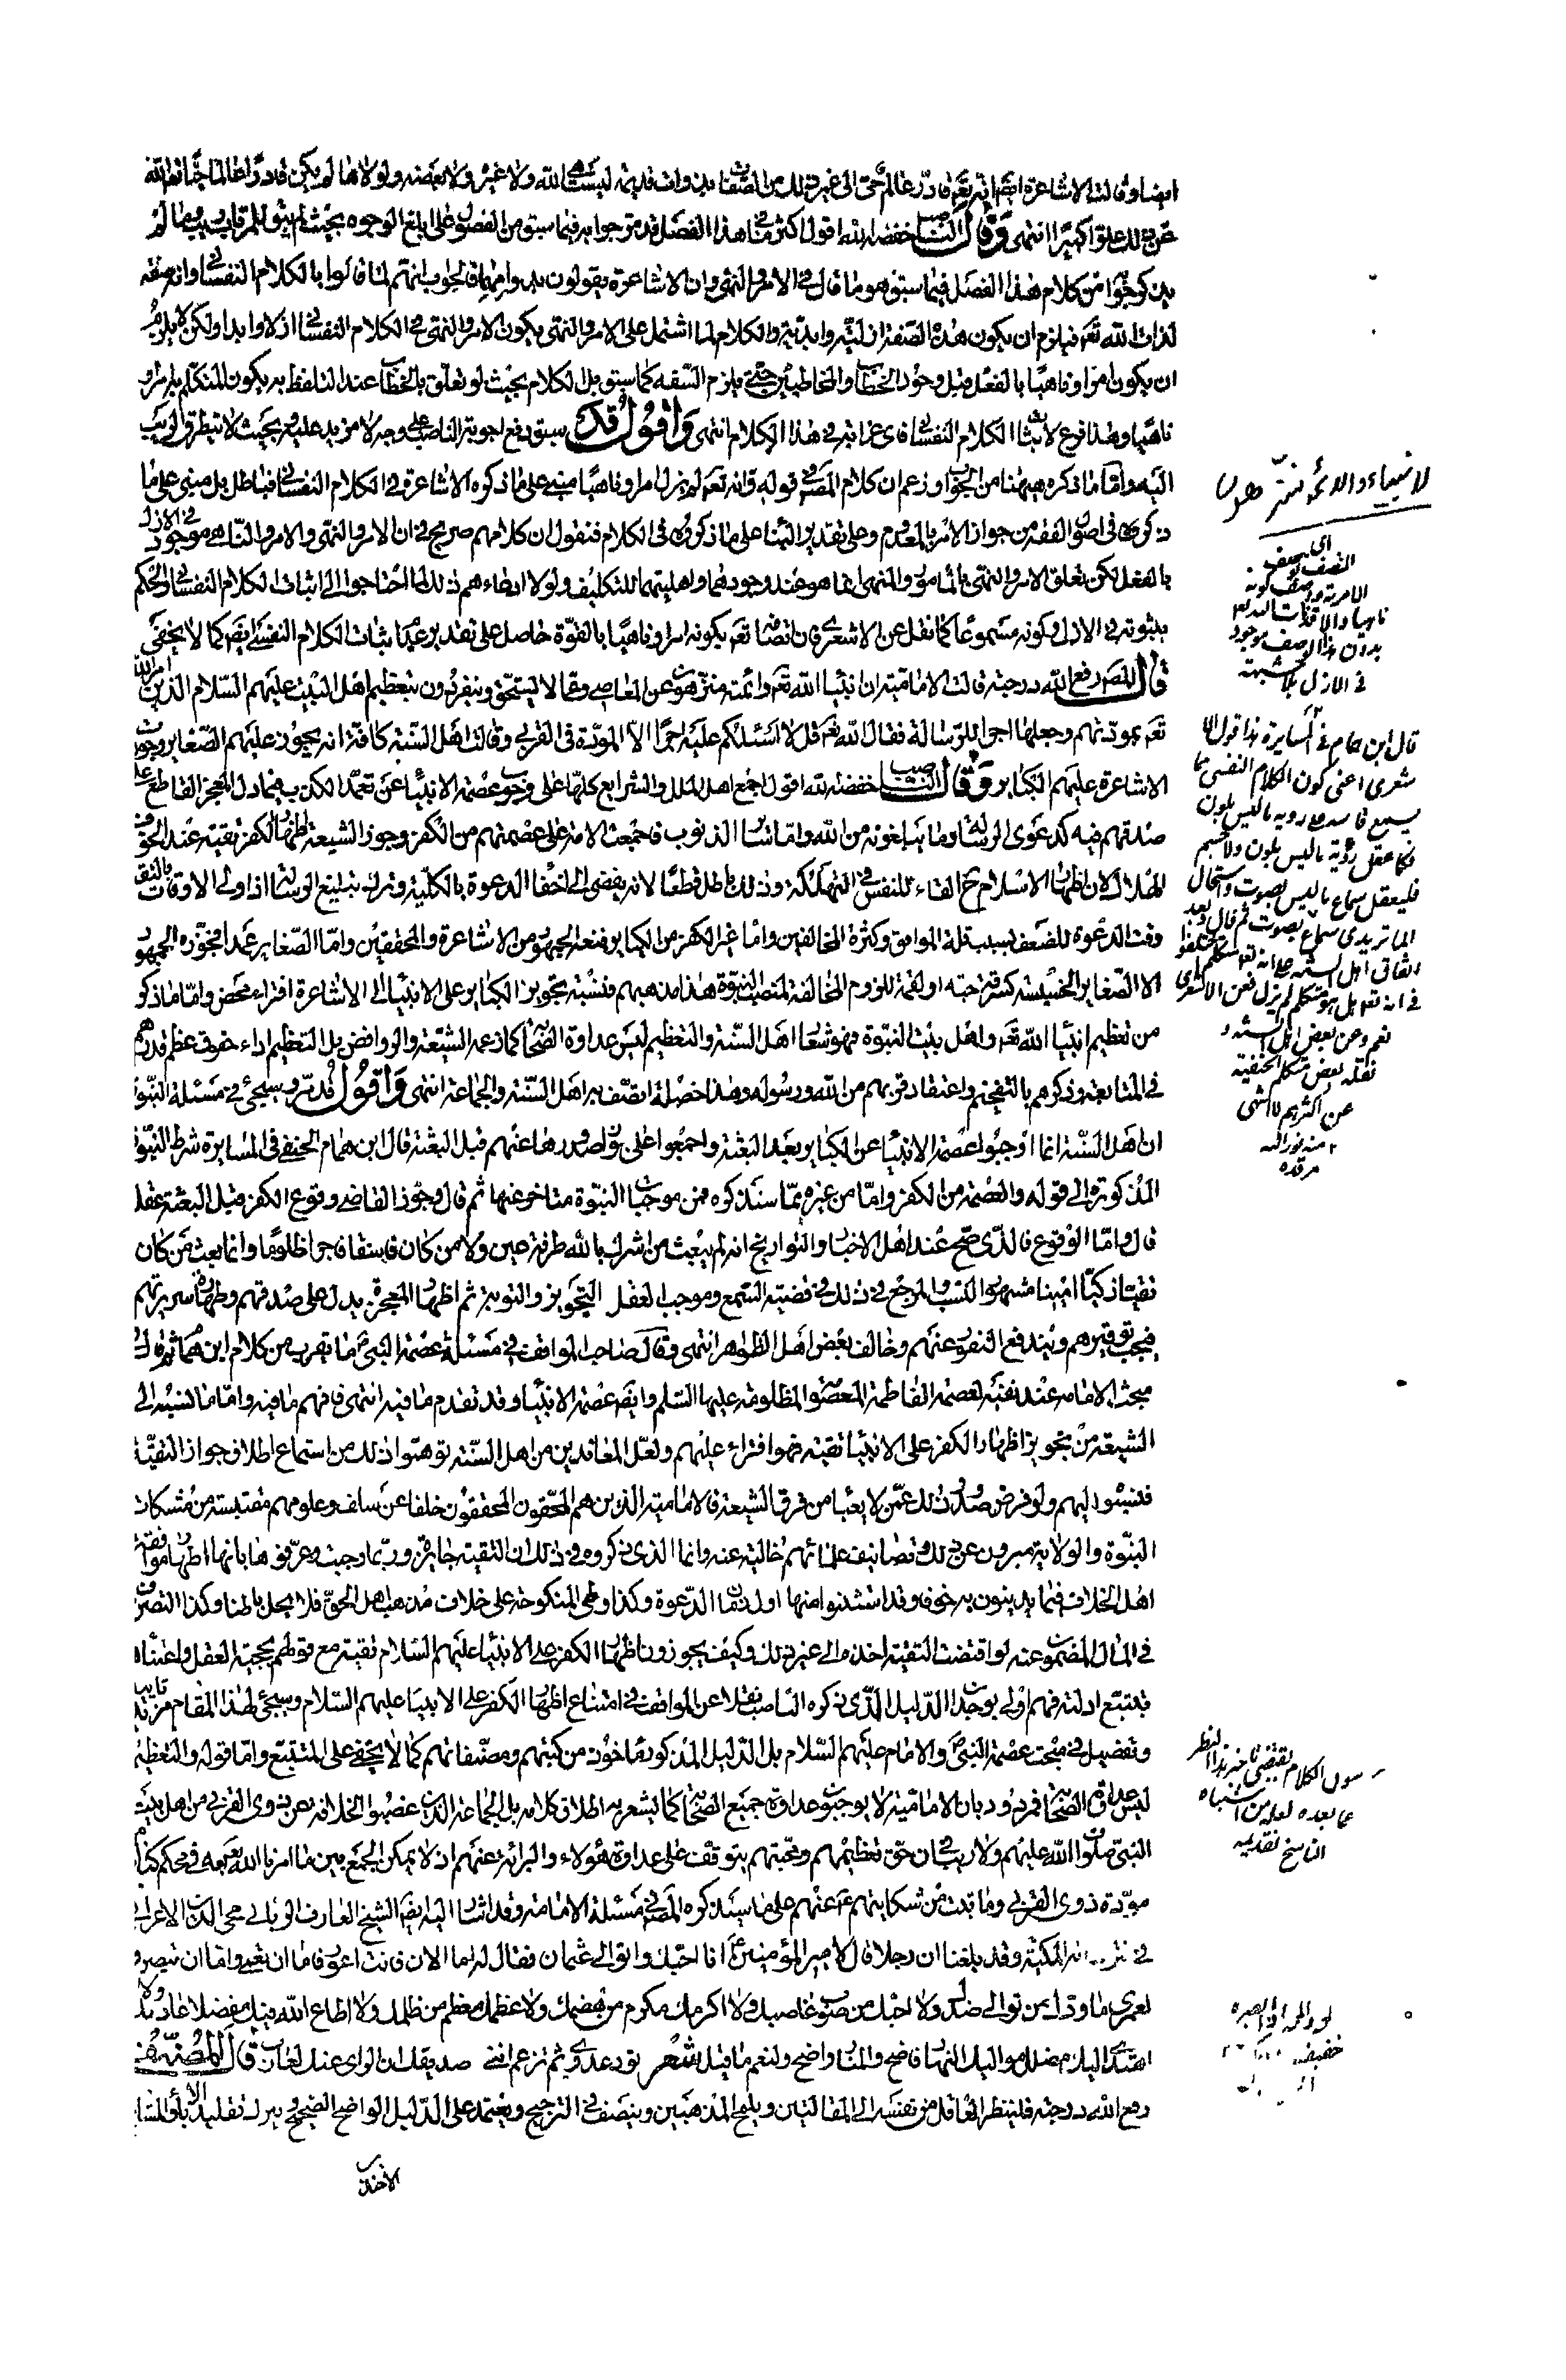 ايضا وقالت الاشاعرة ايضا انه تعم قادر عالم حي الى غير ذلك من الصفات بذوات قديمة ليست هي الله ولا غيره ولا بعضه ولولاها لم يكن قادرا عالما حيا تعم الله
عن ذلك علوا كبيرا انتهى وقال الناصب خفضه الله اقول اكثر ما في هذا الفصل قد مر جوابه فيما سبق من الفصول على ابلغ الوجوه بحيث لم يبق للمرتاب ريب وما لم
يذكر جوابه من كلام هذا الفصل فيما سبق هو ما قال في الامر والنهي وان الاشاعرة يقولون بدوامهما فالجواب انهم لما قالوا بالكلام النفساني وانه صفة
لذات الله تعم فيلزم ان يكون هذه الصفة ازلية وابدية والكلام لما اشتمل على الامر والنهي يكون الامر والنهي في الكلام النفساني ازلا وابدا ولكن لا يلزم
ان يكون امرا وناهيا بالفعل قبل وجود الخطاب والمخاطبين حتى يلزم السفه كما سبق بل الكلام بحيث لو تعلق بالخطاب عند التلفظ به يكون المتكلم به امرا و
ناهيا وهذا فرع لاثبات الكلام النفساني فاي غرابة في هذا الكلام انتهى واقول قد سبق دفع اجوبة الناصب على وجه لا مزيد عليه بحيث لا يتطرق الريب
اليه واما ما ذكره ههنا من الجواب وزعم ان كلام المصنف في قوله وانه تعم لم يزل امرا وناهيا مبني على ما ذكره الاشاعرة في الكلام النفساني فباطل بل مبني على ما
ذكروه في اصول الفقه من جواز الامر بالمعدوم وعلى تقدير البناء على ما ذكروه في الكلام فنقول ان كلامهم صريح في ان الامر والنهي والامر والناهي موجود في الازل
بالفعل لكن تعلق الامر والنهي بالمأمور والمنهي انما هو عند وجودهما واهليتهما للتكليف ولولا ادعاءهم ذلك لما احتاجوا الى اثبات الكلام النفساني والحكم
بثبوته في الازل وكونه مسموعا كما نقل عن الاشعري فان اتصافه تعم بكونه امرا وناهيا بالقوة حاصل على تقدير عدم اثبات الكلام النفسي ايضا كما لا يخفى
قال المصنف رفع الله درجته قالت الامامية ان انبياء الله تعم وائمته منزهون عن المعاصي وعما لا يستحق وينفر ويدينون بتعظيم اهل البيت عليهم السلام الذين امر الله
تعم بمودتهم وجعلها اجر الرسالة فقال الله تعم قل لا اسئلكم عليه اجرا الا المودة في القربى وقالت اهل السنة كافة انه يجوز عليهم الصغاير وجوزت
الاشاعرة عليهم الكباير وقال الناصب خفضه الله اقول اجمع اهل الملل والشرايع كلها على وجوب عصمة الانبياء عن تعمد الكذب فيما دل المعجز القاطع على
صدقهم فيه كدعوى الرسالة وما يبلغونه من الله واما سائر الذنوب فاجمعت الامة على عصمتهم من الكفر وجوز الشيعة اظهار الكفر تقية عند خوف
الهلاك لان اظهار الاسلام ح القاء للنفس في التهلكة وذلك باطل قطعا لانه يفضي الى اخفاء الدعوة بالكلية وترك تبليغ الرسالة اذ اولى الاوقات بالتقية
وقت الدعوة للضعف بسبب قلة الموافق وكثرة المخالفين واما غير الكفر من الكباير فمنعه الجمهور من الاشاعرة والمحققين واما الصغاير عمدا فجوزه الجمهور
الا الصغاير الخسيسة كسرقة حبة او لقمة للزوم المخالفة لمنصب النبوة هذا مذهبهم فنسبة تجويز الكباير على الانبياء الى الاشاعرة افتراء محض واما ما ذكر
من تعظيم انبياء الله تعم واهل بيت النبوة فهو شعار اهل السنة والتعظيم ليس عداوة الصحابة كما زعمه الشيعة والروافض بل التعظيم اداء حقوق عظم قدرهم
في المتابعة وذكرهم بالتفخيم واعتقاد قربهم من الله ورسوله وهذا خصلة اتصف بها اهل السنة والجماعة انتهى واقول قد مر وسيجئ في مسئلة النبوة
ان اهل السنة انما اوجبوا عصمة الانبياء عن الكباير بعد البعثة واجمعوا على جواز صدورها عنهم قبل البعثة قال ابن همام الحنفي في المسايرة شرط النبوة
المذكورة الى قوله والعصمة من الكفر واما من غيره مما سنذكره فمن موجبات النبوة متاخر عنها ثم قال وجوز القاضي وقوع الكفر قبل البعثة عقلا
قال واما الوقوع فالذي صح عند اهل الاخبار والتواريخ انه لم يبعث من اشرك بالله طرفة عين ولا من كان فاسقا فاجرا ظلوما وانما بعث من كان
تقيا زكيا امينا مشهور النسب والمرجع في ذلك قضية السمع وموجب العقل التجويز والتوبيز ثم اظهار المعجزة يدل على صدقهم وطهارة سريرتهم
فيجب توقيرهم ويندفع النفور عنهم وخالف بعض اهل الظواهر انتهى وقال صاحب المواقف في مسئلة عصمة النبي ما يقرب من كلام ابن همام ثم قال في
مبحث الامامة عند نفيه لعصمة الفاطمة المعصومة المظلومة عليها السلم وايضا عصمة الانبياء وقد تقدم ما فيه انتهى فافهم ما فيه واما ما نسبه الى
الشيعة من تجويز اظهار الكفر على الانبياء تقية فهو افتراء عليهم ولعل المعاندين من اهل السنة توهموا ذلك من استماع اطلاق جواز التقية
فنسبوه اليهم ولو فرض صدور ذلك عمن لا يعبأ من فرق الشيعة فالامامية الذين هم المحقون المحققون خلفا عن سلف وعلومهم مقتبسة من مشكاة
النبوة والولاية مبرؤن عن ذلك وتصانيف علمائهم خالية عنه وانما الذي ذكروه في ذلك ان التقية جايزة وربما وجبت وعرفوها بانها اظهار موافقة
اهل الخلاف فيما يدينون به خوفا وقد استثنوا منها اول زمان الدعوة وكذا وطي المنكوحة على خلاف مذهب اهل الحق فلا يحل باطنا وكذا التصرف
في المال المضمون عنه لو اقتضت التقية اخذه الى غير ذلك وكيف يجوزون اظهار الكفر على الانبياء عليهم السلام تقية مع قولهم بحجية العقل واعتناء
بتتبع ادلته فهم اولى بوجدان الدليل الذي ذكره الناصب نقلا عن المواقف في امتناع اظهار الكفر على الانبياء عليهم السلام وسيجئ لهذا المقام مزيد تاييد
وتفصيل في مبحث عصمة النبي والامام عليهم السلام بل الدليل المذكور ماخوذ من كتبهم ومصنفاتهم كما لا يخفى على المتتبع واما قوله والتعظيم
ليس عداوة الصحابة فمردود بان الامامية لا يوجبون عداوة جميع الصحابة كما يشعر به اطلاق كلامه بل الجماعة الذين غصبوا الخلافة عن ذوي القربى من اهل بيت
النبي صلوات الله عليهم ولا ريب في ان حق تعظيمهم ومحبتهم يتوقف على عداوة هؤلاء والبرائة عنهم اذ لا يمكن الجمع بين ما امرنا الله تعم به في محكم كتابه
مودة ذوي القربى وما ثبت من شكايتهم عنهم على ما سيذكره المصنف في مسئلة الامامة وقد اشار اليه ايضا الشيخ العارف الولي محيي الدين الاعرابي
في المكية وقد بلغنا ان رجلا قال لامير المؤمنين انا احبك واتوالى عثمان فقال له اما الان فانت اعور فاما ان تعمى واما ان تبصر و
لعمري ما ودك من توالى ضدك ولا احبك من صوب غاصبك ولا اكرمك مكرم من هضمك ولا عظمك معظم من ظلمك ولا اطاع الله فيك مفضل اعاديك ولا
اهتدى اليك مضلل مواليك النهار فاضح والمنار واضح ولنعم ما قيل شعر تود عدوي ثم تزعم انني صديقك ان الراى عنك لعازب قال المصنف
رفع الله درجته فلينظر العاقل من نفسه الى المقالتين ويلمح المذهبين وينصف في الترجيح ويعتمد على الدليل الواضح الصحيح ويترك تقليد الآباء والمشايخ
الاخذين
قال ابن همام في المسايرة هذا قول الا
شعري اعني كون الكلام النفسي مما
يسمع قاسه على رؤية ما ليس بلون
فكما عقل رؤية ما ليس بلون ولا جسم
فليعقل سماع ما ليس بصوت واستحال
الماتريدي سماع ما ليس بصوت ثم قال وبعد
اتفاق اهل السنة على انه تعم متكلم اختلفوا
في انه تعم هل هو متكلم لم يزل فعن الاشعري
نعم وعن بعض اهل السنة و
نقله بعض متكلمي الحنفية
عن اكثرهم لا انتهى
منه نور الله
مرقده
سوق الكلام يقتضي تاخير هذا النظر
عما بعده لعله من اشتباه
الناسخ تقديمه